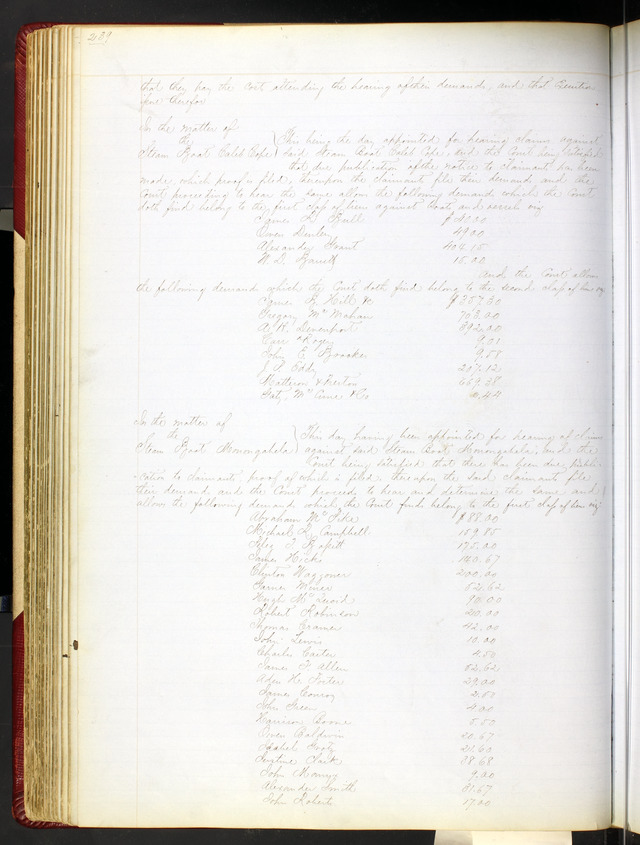 239
that they pay the Cost attending the hearing of their demands, and that Execution
issue therefor
In the matter of
the
Steam Boat Caleb Cope
This being the day appointed for hearing claims against
said Steam Boat Caleb Cope and the Court being Satisfied
that due publication of the notice to claimants has been
made, which proof is filed, thereupon the claimants file their demands and the
Court proceeding to hear the same allow the following demands which the Court
doth find belong to the first class of liens against Boats and vessels viz
James Ball $40.00
Owen 49.00
Alexander Grant 404.15
W. D. Barrett 15.00
And the Court allows
the following demands which the Court doth find belong to the second class of liens viz
James B. Hill & $357.30
Gregory McMahan 703.00
A. R. Devenport 892.00
Carr & Rogers 9.01
John E. Brooke 9.58
Eddy 207.12
Matteson & 669.38
McCune & Co .44
In the matter of
the
Steam Boat Monongahela
This day having been appointed for hearing of claims
against said Steam Boat Monongahela, and the
Court being satisfied that there has been due publi-
-cation to claimants, proof of which is filed, thereupon the said claimants file
their demands and the Court proceeds to hear and determine the same and
allows the following demands which the Court finds belong to the first class of liens viz
Abraham McPike $88.00
Michael Campbell 159.85
175.00
James Hicks 140.67
Clinton Waggoner 200.00
James Miner 52.62
Hugh McCord 90.00
Robert Robinson 20.00
Thomas Cramer 42.00
John Lewis 10.00
Charles Carter 4.50
James F. Allen 52.62
Aden H. Foster 29.00
James Conroy 2.50
John Green 4.00
Harrison Boone 5.50
Owen Baldwin 20.67
21.60
Clark 38.68
John 9.00
Alexander Smith 31.67
John Roberts 17.00